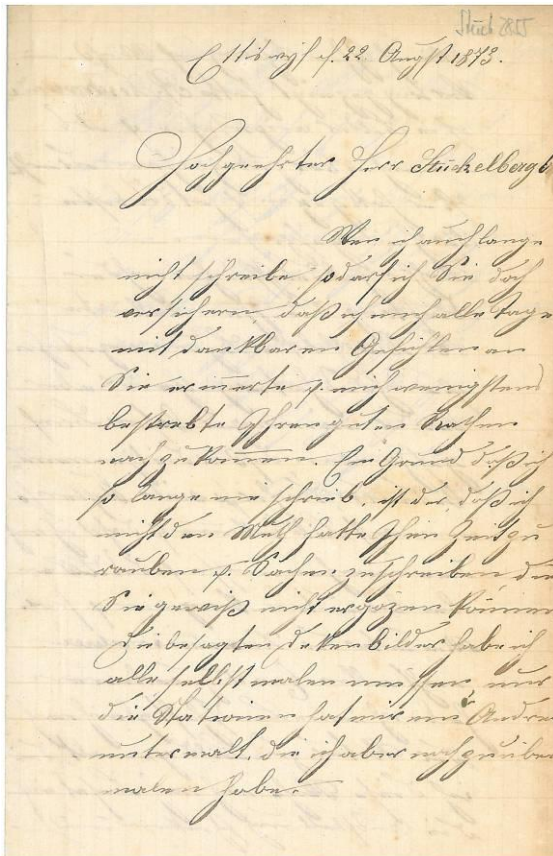 Stück 2855
Ettiswyl d. 22. Augst 1873.
Hochgeehrter Herr Stückelberg!
Wen ich auch lange
nicht schreibe, so darf ich Sie doch
versichern, daß ich mich alle Tage
mit dankbaren Gefühlen an
Sie erinerte u. mich wenigstens
bestrebte Ihren guten Rathen
nachzukommen. Ein Grund daß ich
so lange nie schrieb, ist der, daß ich
nicht den Muth hatte Ihnen Zeit zu
rauben u. Sachen zuschreiben die
Sie gewiß nicht ergözen könen
Die besagten Dekenbilder habe ich
alle selbst malen müssen, nur
die Stationen hat mir ein Andre
untermalt, die ich aber noch zu über
malen habe.